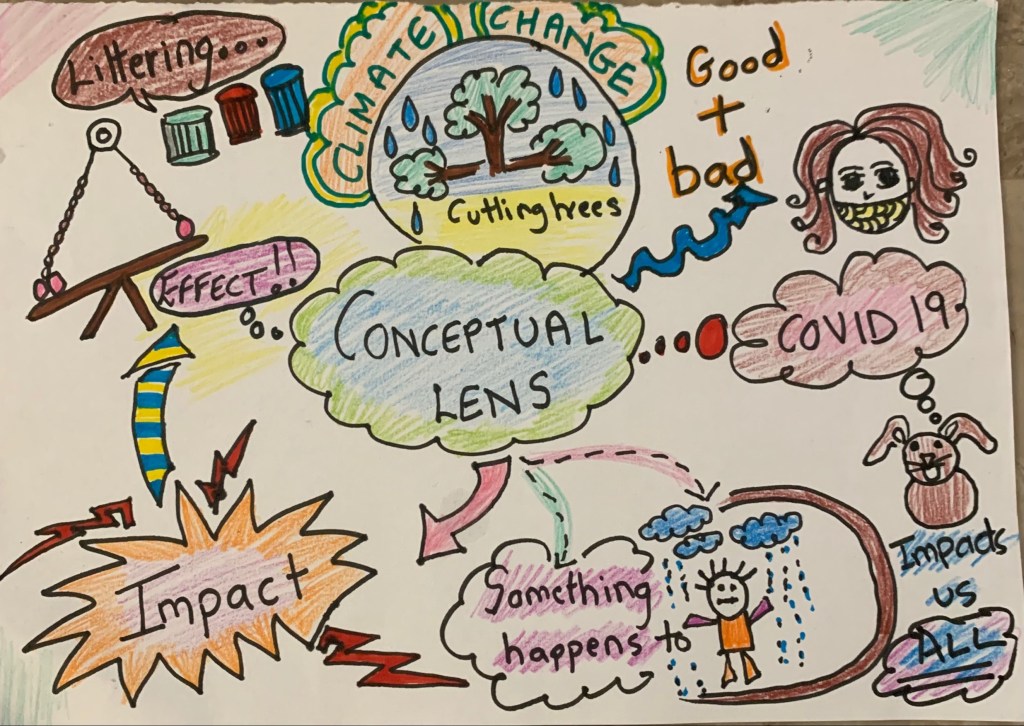 Littering...
CLIMATE CHANGE
Cutting trees
Good
+
bad
EFFECT!!
CONCEPTUAL
LENS
COVID 19
Impact
Something
happens to
Impacts
us
ALL